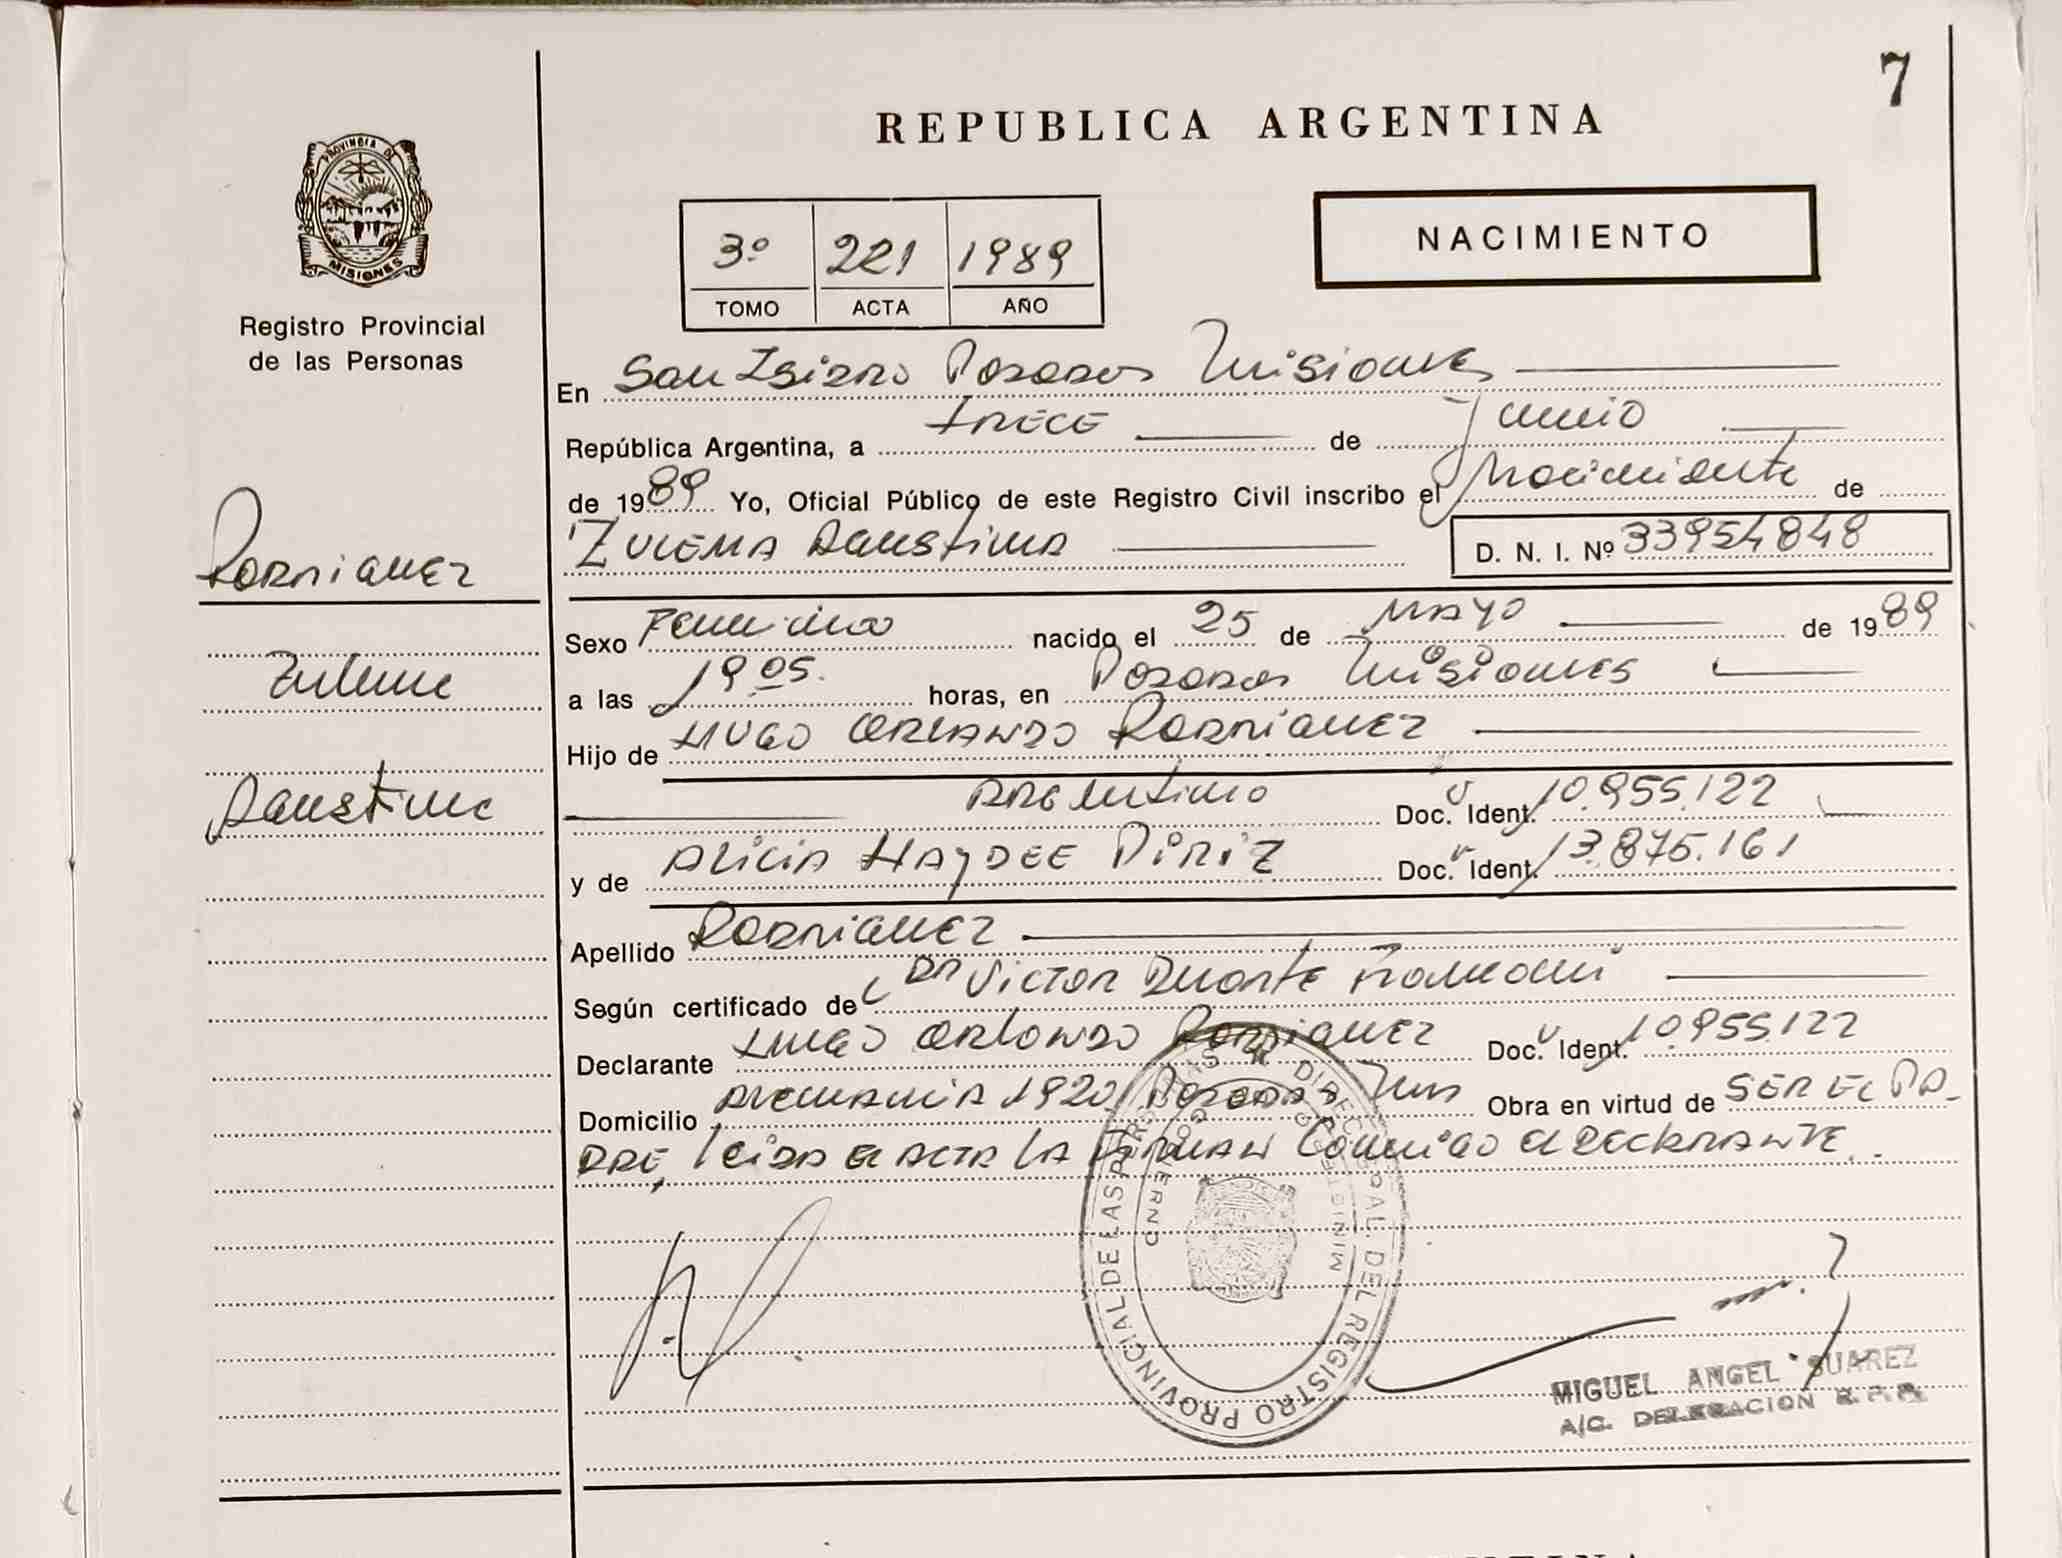 7
REPUBLICA ARGENTINA
PROVINCIA DE
MISIONES
Registro Provincial
de las Personas
3º 221 1989
TOMO ACTA AÑO
NACIMIENTO
En San Isidro Posadas Misiones
República Argentina, a trece de Junio
de 1989 Yo, Oficial Público de este Registro Civil inscribo el Nacimiento de
ZULEMA Agustina D. N. I. Nº 33954848
Rodriguez
Zulema
Agustina
Sexo Femenino nacido el 25 de MAYO de 1989
a las 19 05. horas, en Posadas Misiones
Hijo de HUGO ORLANDO Rodriguez
Argentino Doc. Ident. 10.955.122
y de ALICIA HAYDEE Diriz Doc. Ident. 13.875.161
Apellido Rodriguez
Según certificado de Dr Victor Duarte
Declarante Hugo Orlando Rodriguez Doc. Ident. 10.955.122
Domicilio Alemania 1920 Posadas Mns Obra en virtud de SER EL PA-
DRE, leida el ACTA LA Firman Conmigo el Declarante.
DIRECC. GRAL. DEL REGISTRO PROVINCIAL DE LAS PERSONAS
MINISTERIO GOBIERNO
MIGUEL ANGEL SUAREZ
A/C. DELEGACION R. P. P.